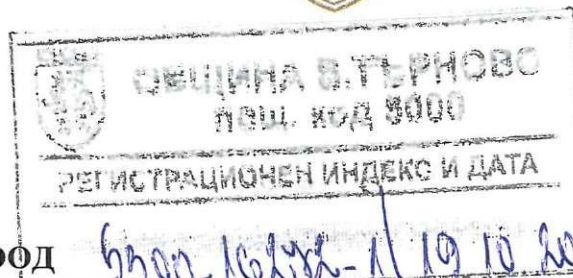 ОБЩИНА В.ТЪРНОВО
ПОЩ. КОД 5000
РЕГИСТРАЦИОНЕН ИНДЕКС И ДАТА
род 19 10